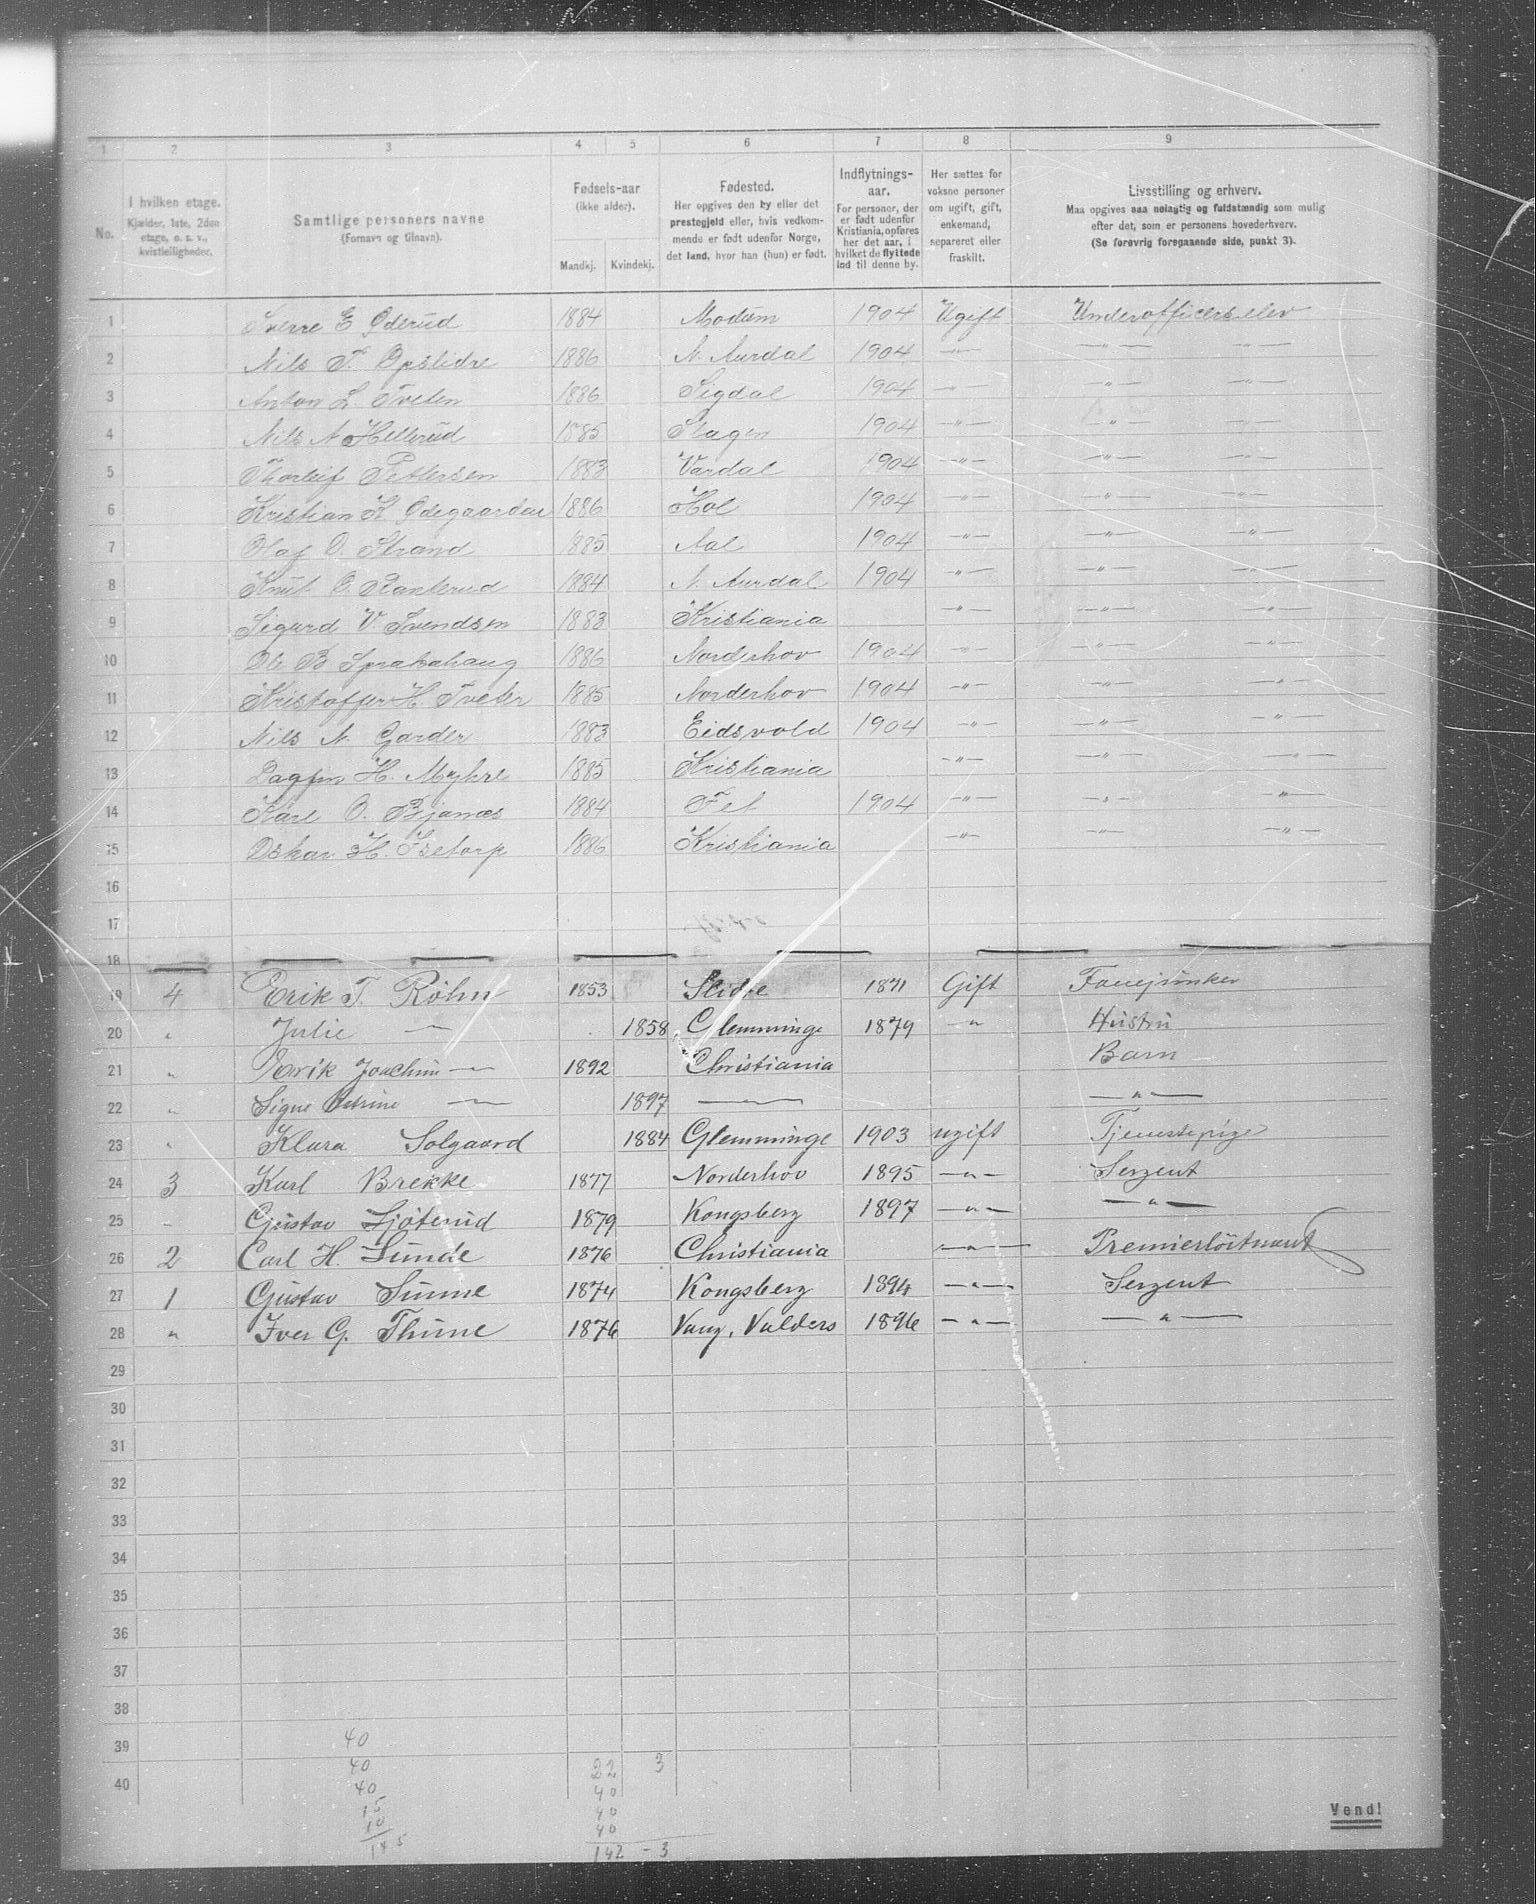 1 2 3 4 5 6 7 8 9
No.
I hvilken etage.
Kjælder, 1ste, 2den
etage, o. s. v.,
kvistleiligheder.
Samtlige personers navne
(Fornavn og tilnavn).
Fødsels-aar
(ikke alder).
Mandkj. Kvindekj.
Fødested.
Her opgives den by eller det
prestegjeld eller, hvis vedkom-
mende er født udenfor Norge,
det land, hvor han (hun) er født.
Indflytnings-
aar.
For personer, der
er født udenfor
Kristiania, opføres
her det aar, i
hvilket de flyttede
ind til denne by.
Her sættes for
voksne personer
om ugift, gift,
enkemand,
separeret eller
fraskilt.
Livsstilling og erhverv.
Maa opgives saa nøiagtig og fuldstændig som mulig
efter det, som er personens hovederhverv.
(Se forøvrig foregaaende side, punkt 3).
1 Sverre E Øderud 1884 Modum 1904 Ugift Underofficerselev
2 Nils T. Opslidre 1886 N. Aurdal 1904 —„— —„— —„—
3 Anton L. Tveten 1886 Sigdal 1904 —„— —„— —„—
4 Nils A Hellerud 1885 Slagen 1904 —„— —„— —„—
5 Thorleif Pettersen 1883 Vardal 1904 —„— —„— —„—
6 Kristian K Ødegaarden 1886 Hol 1904 —„— —„— —„—
7 Olaf O. Strand 1885 Aal 1904 —„— —„— —„—
8 Knut O. Ranterud 1884 N. Aurdal 1904 —„— —„— —„—
9 Sigurd V. Svendsen 1883 Kristiania —„— —„— —„—
10 Ole B Sprakahaug 1886 Norderhov 1904 —„— —„— —„—
11 Kristoffer H. Tveter 1885 Norderhov 1904 —„— —„— —„—
12 Nils N. Garder 1883 Eidsvold 1904 —„— —„— —„—
13 Dagfin H. Myhre 1885 Kristiania —„— —„— —„—
14 Karl O. Bjanæs 1884 Fet 1904 —„— —„— —„—
15 Oskar H. Isetorp 1886 Kristiania —„— —„— —„—
16
17
18
19 4 Erik T. Röhn 1853 Slidre 1871 Gift Fanejunker
20 „ Julie —„— 1858 Glemminge 1879 —„— Hustru
21 „ Erik Joachim —„— 1892 Christiania Barn
22 „ Signe Petrine —„— 1897 —„— —„—
23 „ Klara Solgaard 1884 Glemminge 1903 ugift Tjenestepige
24 3 Karl Brekke 1877 Norderhov 1895 —„— Sergent
25 „ Gustav Sjöterud 1879 Kongsberg 1897 —„— —„—
26 2 Carl H. Sunde 1876 Christiania —„— Premierlöitnant
27 1 Gustav Sunne 1874 Kongsberg 1894 —„— Sergent
28 „ Iver G. Thune 1876 Vang, Valders 1896 —„— —„—
29
30
31
32
33
34
35
36
37
38
39 40
40 40 22 3
40 40
15 40
10 40
145 142 – 3
Vend!